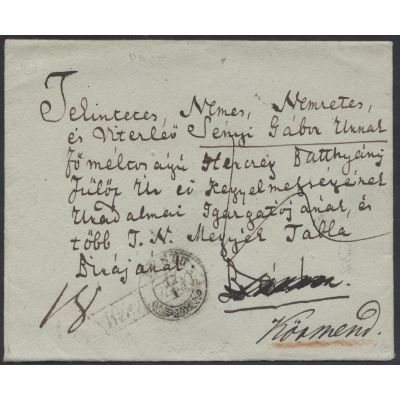 Tekintetes, Nemes, Nemzetes,
és Vitézlő Sényi Gábor Urnak
Főméltóságú Herczeg Batthyánÿ
Fülöp Ur eő Kegyelmességének
Uradalmai Igazgatójának, és
több T. N. Megyék Tábla
Birájának
Körmend.